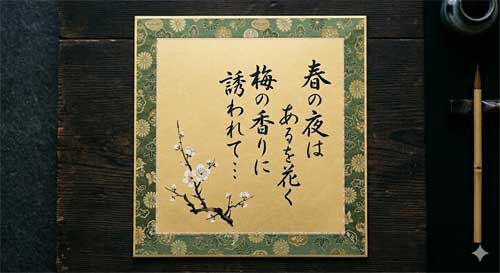 春の夜は
あるを花く
梅の香りに
誘われて…